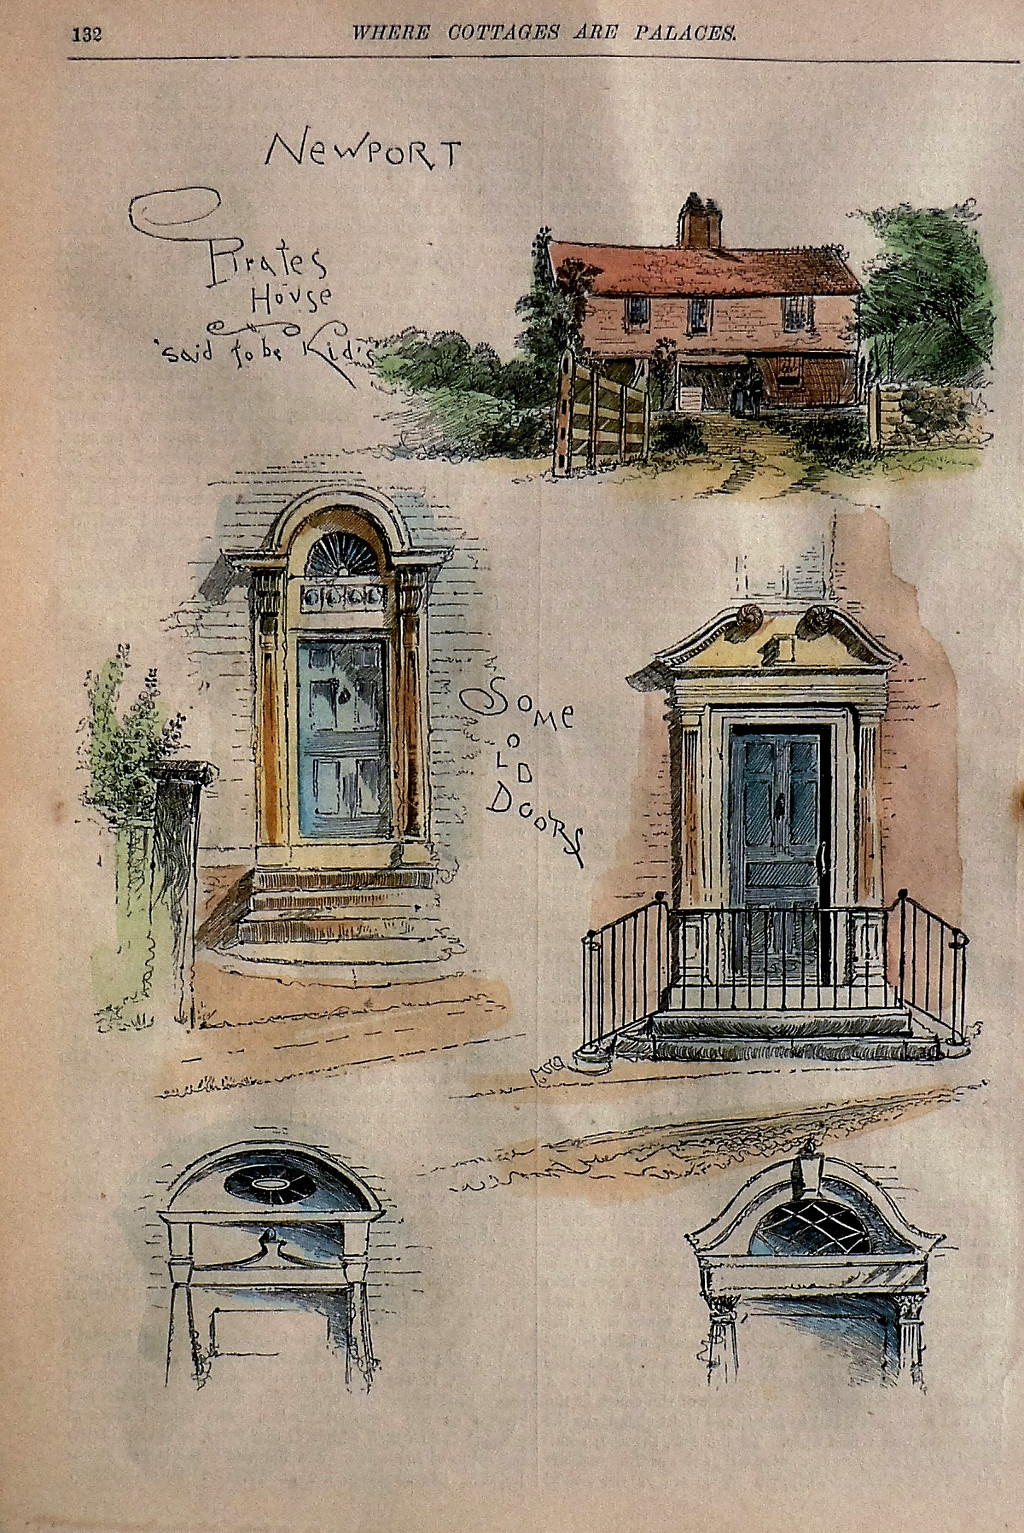 132
WHERE COTTAGES ARE PALACES.
NEWPORT
Pirates
House
'said to be Kid's
SOME
OLD
DOORS